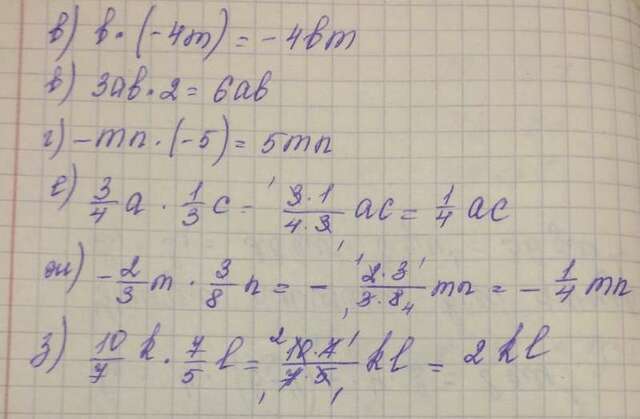 б) b · (-4m) = -4bm
в) 3ab · 2 = 6ab
г) -mn · (-5) = 5mn
е) 3/4 a · 1/3 c = (3·1)/(4·3) ac = 1/4 ac
ж) -2/3 m · 3/8 n = -(2·3)/(3·8) mn = -1/4 mn
з) 10/7 k · 7/5 l = (10·7)/(7·5) kl = 2kl